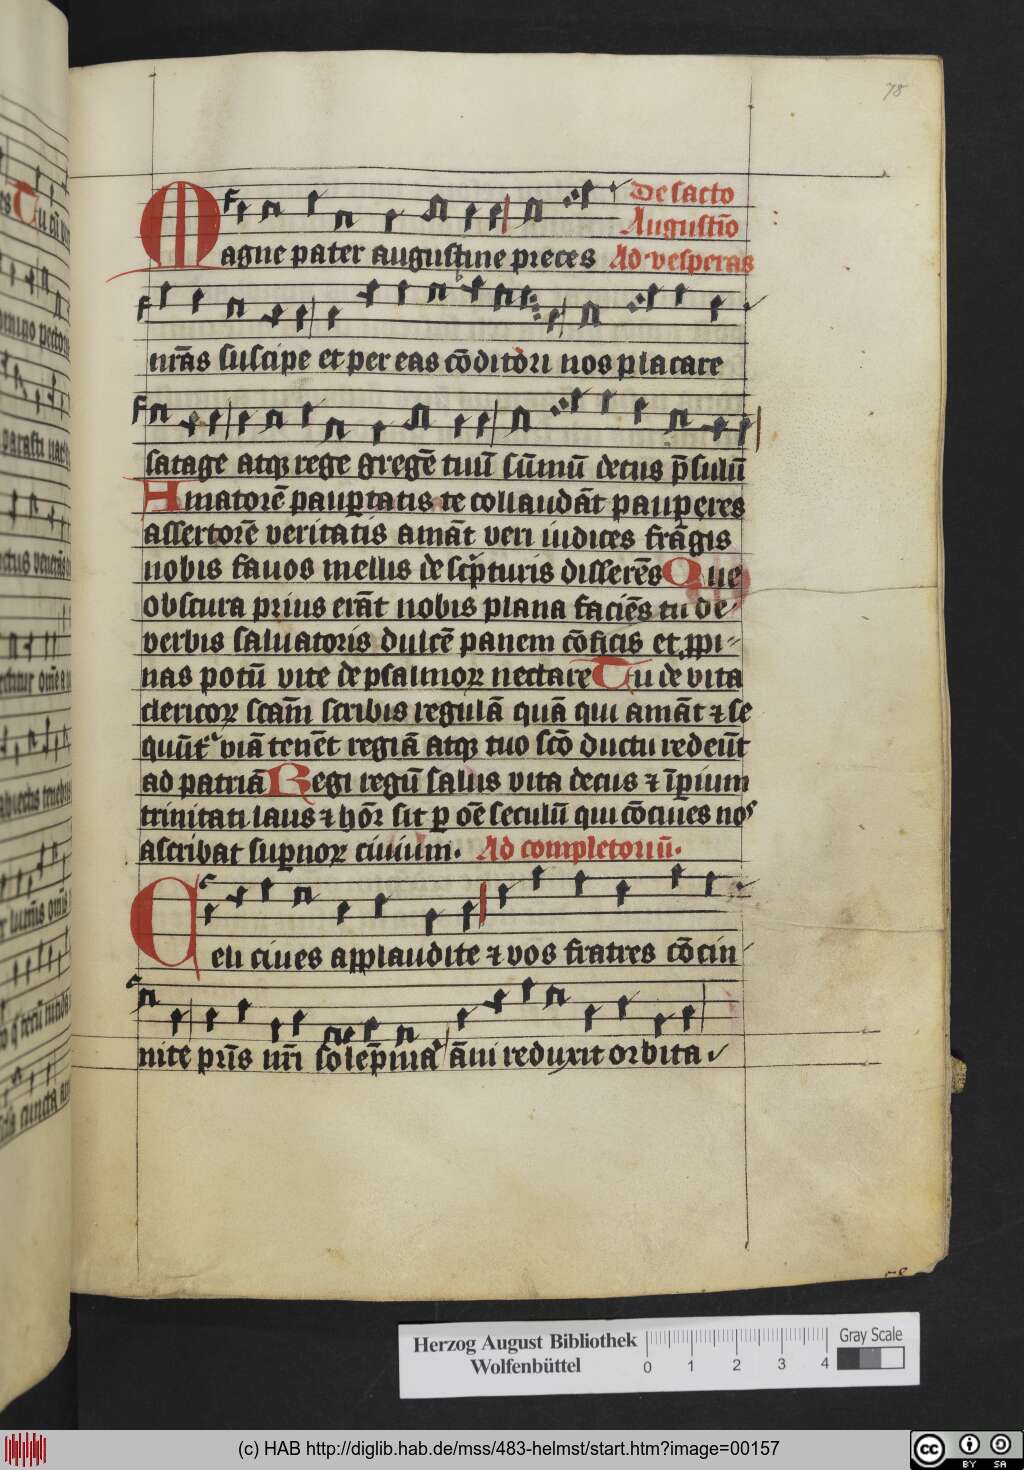 78
De sācto
Augustīo
Magne pater augustine preces Ad vesperas
nrās suscipe et per eas cōditori nos placare
satage atqꝫ rege gregē tuū sūmū decus p̄sulū
Amatorē paup̱tatis te collaudāt paup̱eres
assertorē veritatis amāt veri iudices frāgis
nobis fauos mellis de sc̄pturis disserēs Que
obscura prius erāt nobis plana faciēs tu de
verbis saluatoris dulcē panem cōficis et ꝓpi⸗
nas potū vite de psalmoꝝ nectare Tu de vita
clericoꝝ scām scribis regulā quā qui amāt ⁊ se
quūt᷑ viā tenēt regiā atqꝫ tuo scō ductu redeūt
ad patriā Regi regū salus vita decus ⁊ īp̱ium
trinitati laus ⁊ hōr sit ꝑ oē seculū qui cōciues nos
ascribat sup̱noꝝ ciuium· Ad completoriū·
Celi ciues applaudite ⁊ vos fratres cōcin
nite pr̄is nr̄i solēp̄nia āni reduxit orbita
Herzog August Bibliothek
Wolfenbüttel
0 1 2 3 4
Gray Scale
(c) HAB http://diglib.hab.de/mss/483-helmst/start.htm?image=00157
cc BY SA